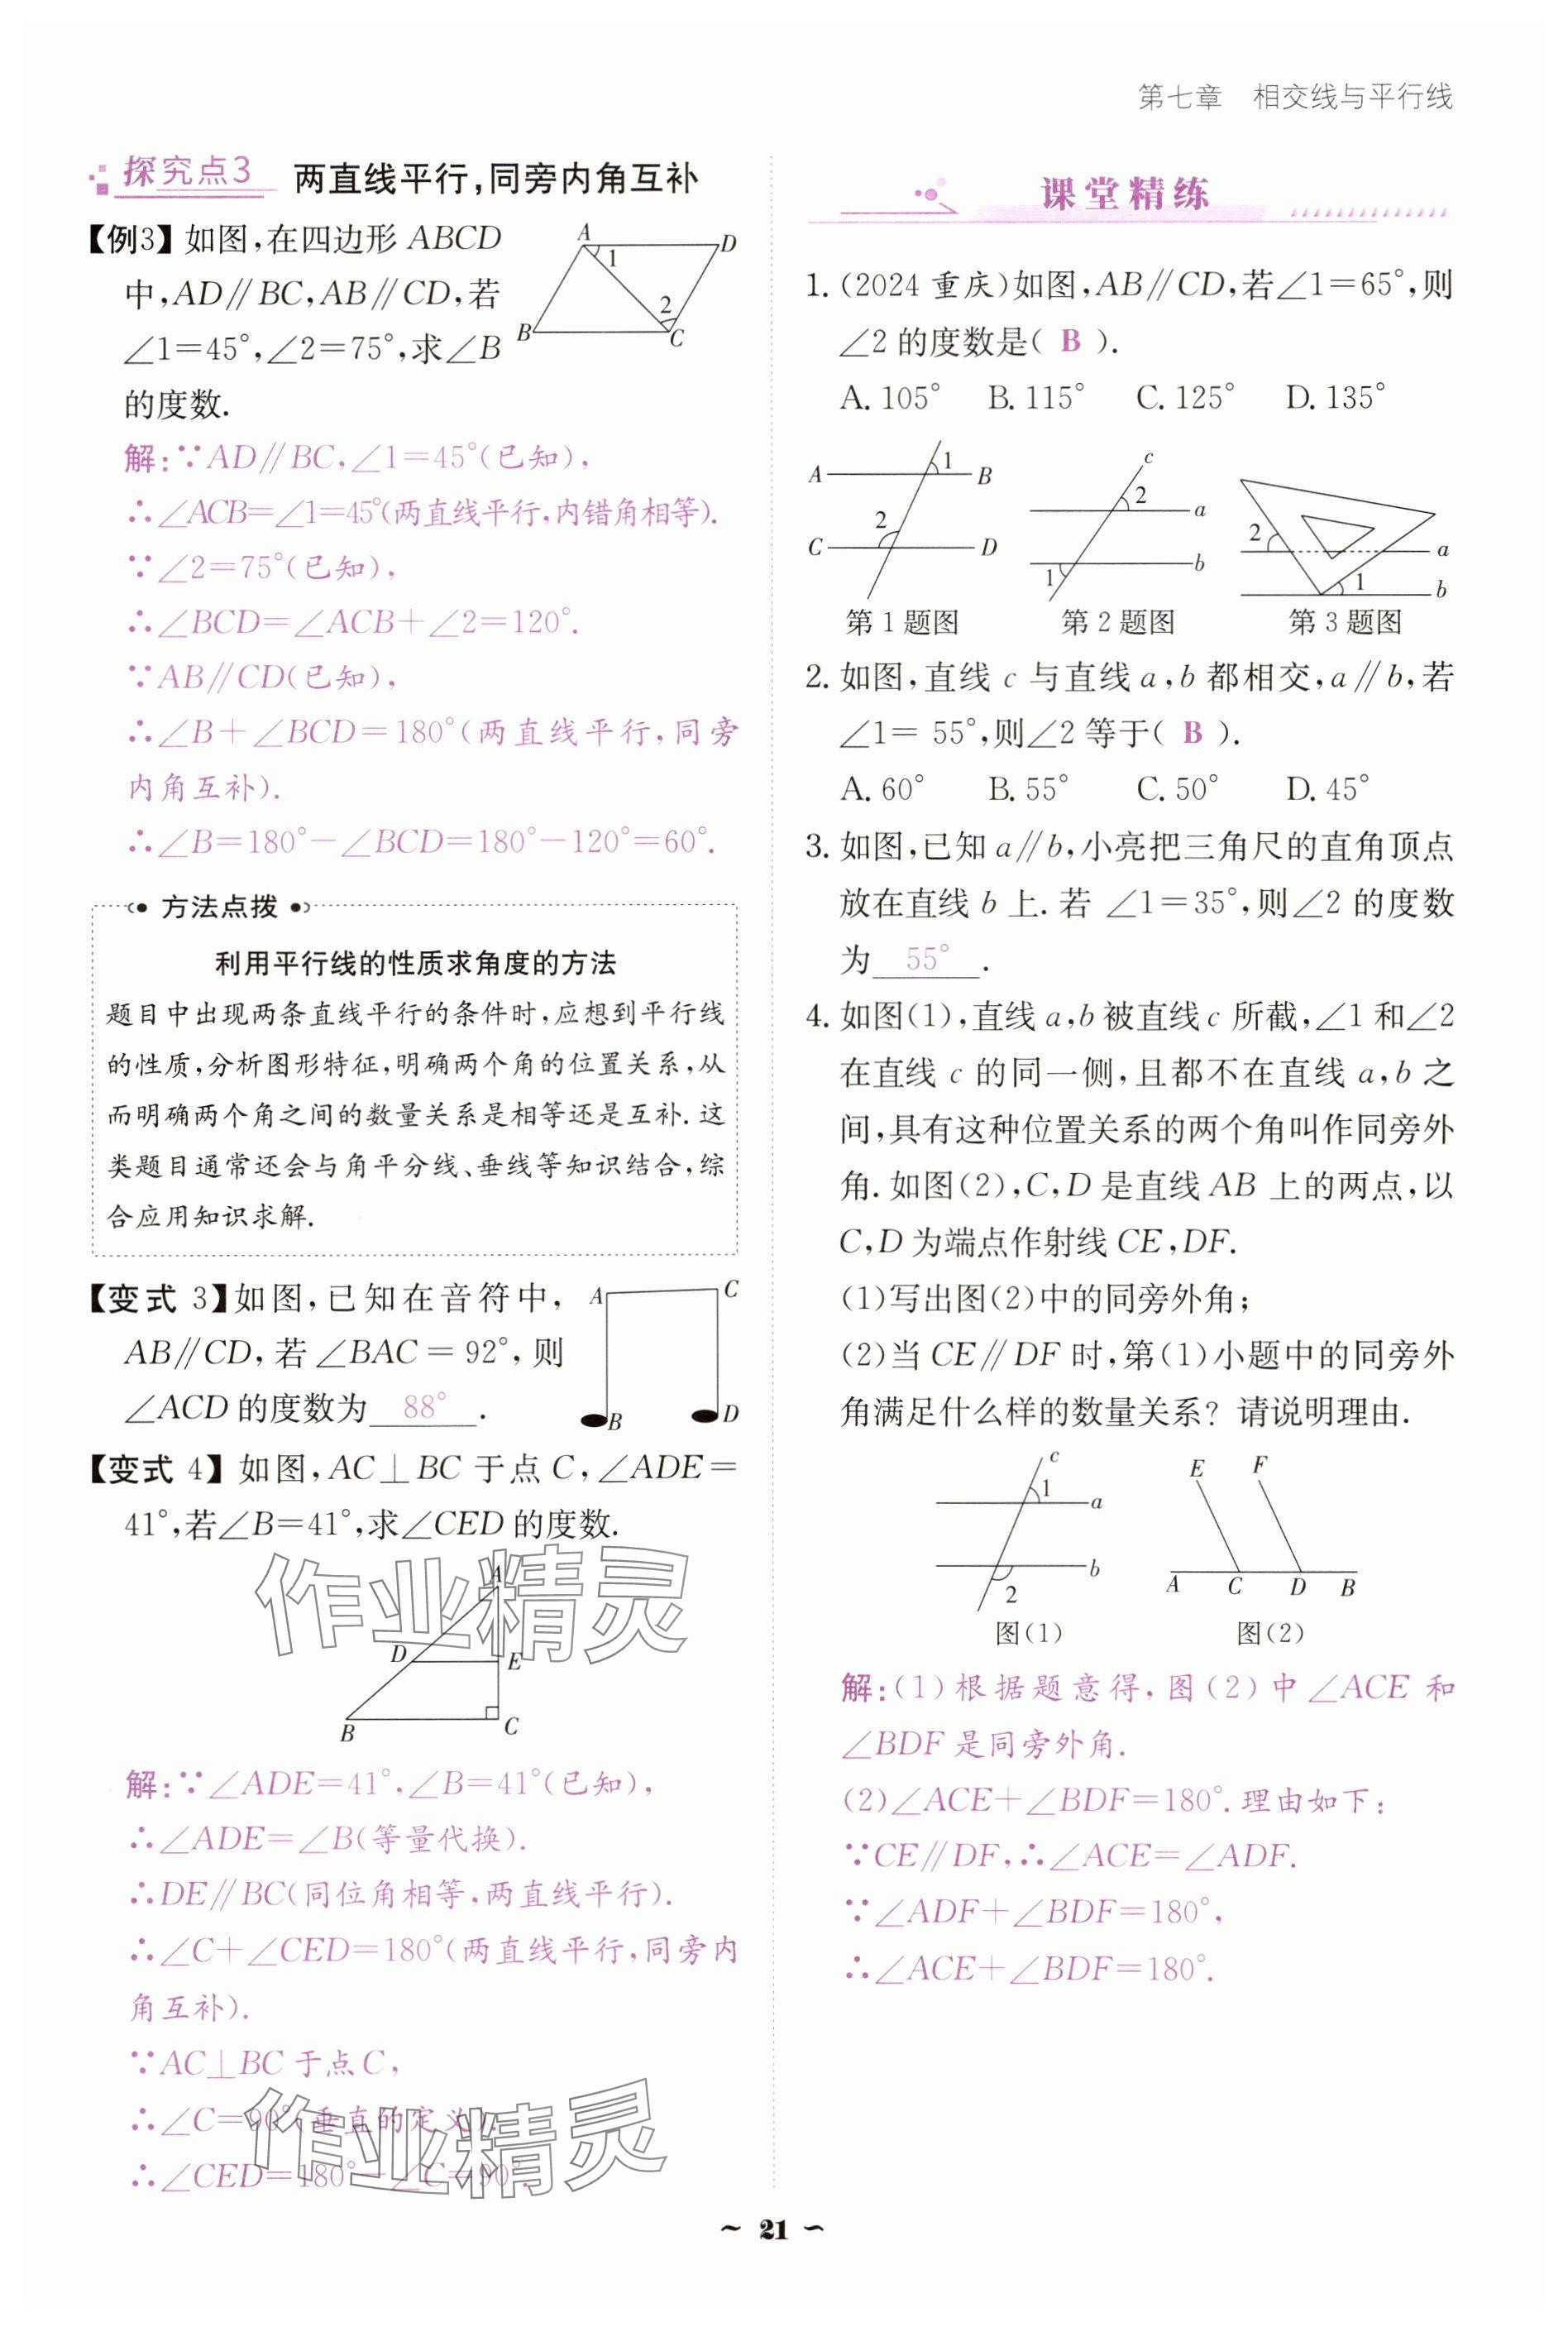 第七章 相交线与平行线
探究点3 两直线平行,同旁内角互补
【例3】如图,在四边形 ABCD
中,AD∥BC,AB∥CD,若
∠1=45°,∠2=75°,求∠B
的度数.
A
D
1
2
B
C
解:∵AD∥BC,∠1=45°(已知),
∴∠ACB=∠1=45°(两直线平行,内错角相等).
∵∠2=75°(已知),
∴∠BCD=∠ACB+∠2=120°.
∵AB∥CD(已知),
∴∠B+∠BCD=180°(两直线平行,同旁
内角互补).
∴∠B=180°-∠BCD=180°-120°=60°.
方法点拨
利用平行线的性质求角度的方法
题目中出现两条直线平行的条件时,应想到平行线
的性质,分析图形特征,明确两个角的位置关系,从
而明确两个角之间的数量关系是相等还是互补.这
类题目通常还会与角平分线、垂线等知识结合,综
合应用知识求解.
【变式 3】如图,已知在音符中,
AB∥CD,若∠BAC=92°,则
∠ACD 的度数为 88° .
A
C
B
D
【变式 4】如图,AC⊥BC 于点 C,∠ADE=
41°,若∠B=41°,求∠CED 的度数.
作业精灵
A
D
E
B
C
解:∵∠ADE=41°,∠B=41°(已知),
∴∠ADE=∠B(等量代换).
∴DE∥BC(同位角相等,两直线平行).
∴∠C+∠CED=180°(两直线平行,同旁内
角互补).
∵AC⊥BC 于点 C,
∴∠C=90°(垂直的定义).
∴∠CED=180°-∠C=90°.
作业精灵
课堂精练
1.(2024 重庆)如图,AB∥CD,若∠1=65°,则
∠2 的度数是( B ).
A. 105° B. 115° C. 125° D. 135°
A
1
B
C
2
D
第 1 题图
c
2
a
1
b
第 2 题图
2
a
1
b
第 3 题图
2. 如图,直线 c 与直线 a,b 都相交,a∥b,若
∠1= 55°,则∠2 等于( B ).
A. 60° B. 55° C. 50° D. 45°
3. 如图,已知 a∥b,小亮把三角尺的直角顶点
放在直线 b 上.若 ∠1=35°,则∠2 的度数
为 55° .
4. 如图(1),直线 a,b 被直线 c 所截,∠1 和∠2
在直线 c 的同一侧,且都不在直线 a,b 之
间,具有这种位置关系的两个角叫作同旁外
角.如图(2),C,D 是直线 AB 上的两点,以
C,D 为端点作射线 CE,DF.
(1)写出图(2)中的同旁外角;
(2)当 CE∥DF 时,第(1)小题中的同旁外
角满足什么样的数量关系?请说明理由.
c
1
a
b
2
图(1)
E
F
A
C
D
B
图(2)
解:(1)根据题意得,图(2)中∠ACE 和
∠BDF 是同旁外角.
(2)∠ACE+∠BDF=180°.理由如下:
∵CE∥DF,∴∠ACE=∠ADF.
∵∠ADF+∠BDF=180°,
∴∠ACE+∠BDF=180°.
~ 21 ~